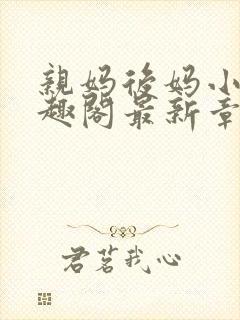 親妈後妈小
趣阁最新章
君茗我心